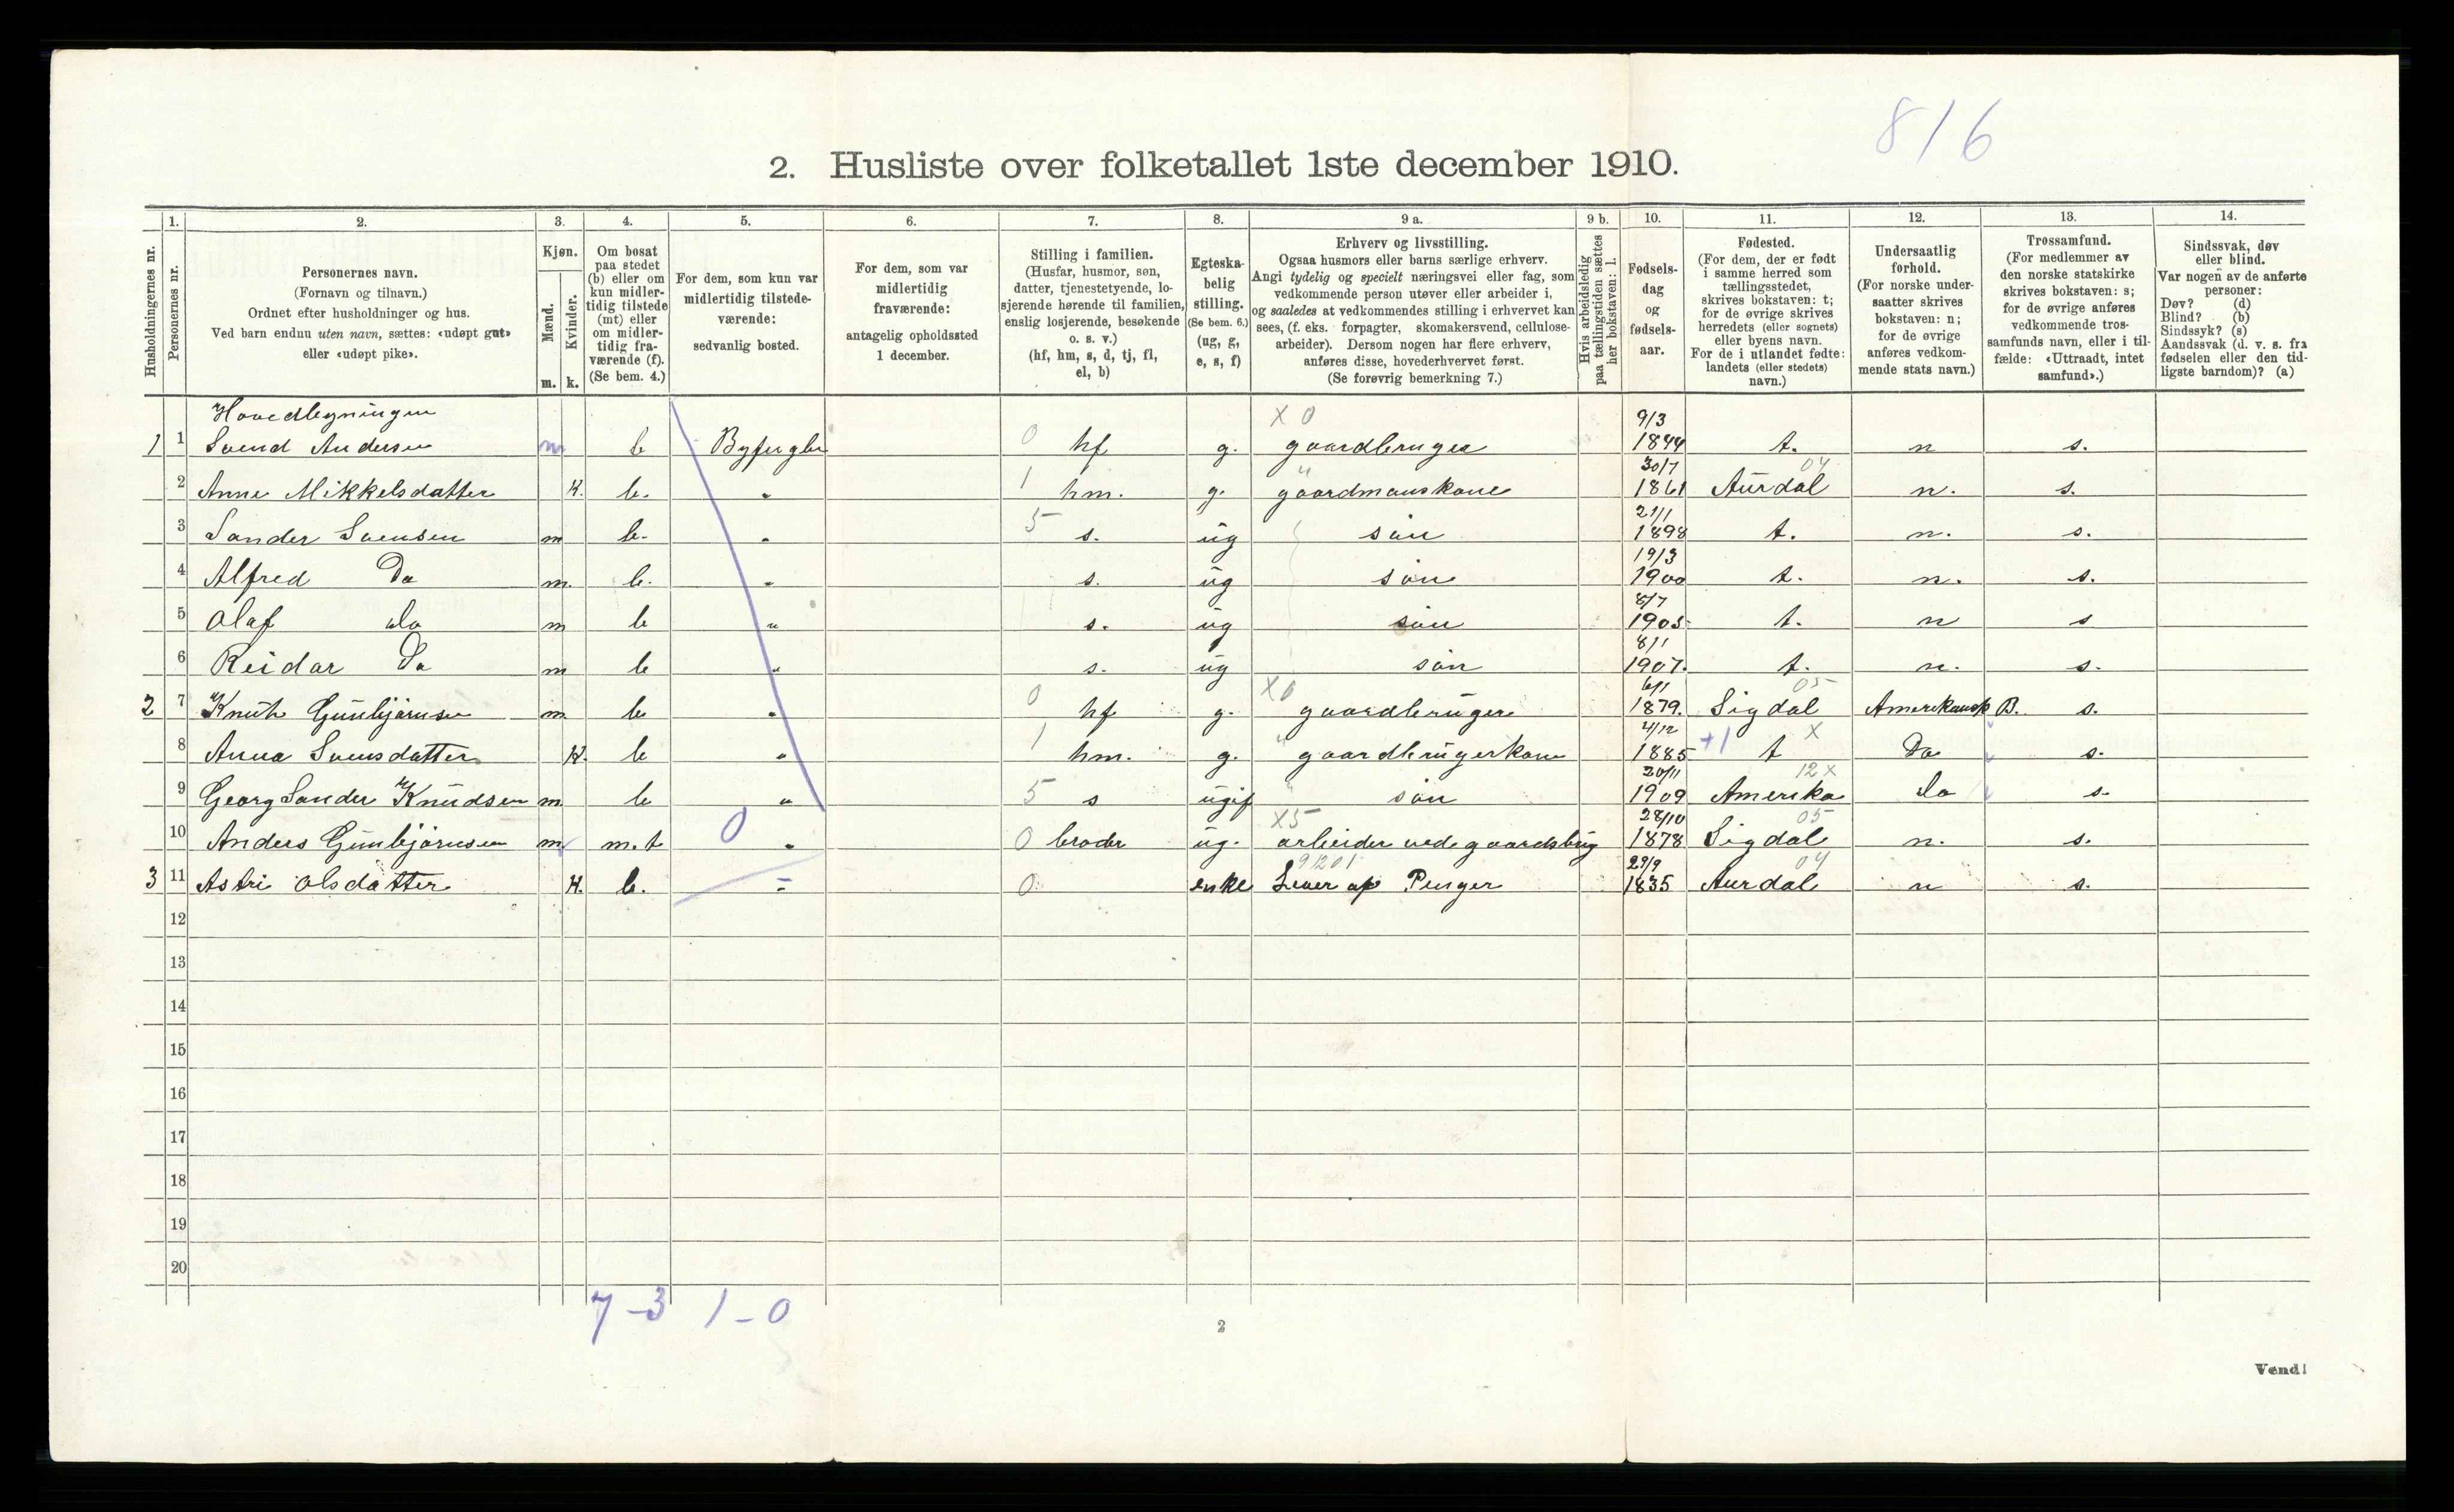 816
2. Husliste over folketallet 1ste december 1910.
Husholdningernes nr.
1.
Personernes nr.
2.
Personernes navn.
(Fornavn og tilnavn.)
Ordnet efter husholdninger og hus.
Ved barn endnu uten navn, sættes: «udøpt gut»
eller «udøpt pike».
3.
Kjøn.
Mænd.
m.
Kvinder.
k.
4.
Om bosat
paa stedet
(b) eller om
kun midler-
tidig tilstede
(mt) eller
om midler-
tidig fra-
værende (f).
(Se bem. 4.)
5.
For dem, som kun var
midlertidig tilstede-
værende:
sedvanlig bosted.
6.
For dem, som var
midlertidig
fraværende:
antagelig opholdssted
1 december.
7.
Stilling i familien.
(Husfar, husmor, søn,
datter, tjenestetyende, lo-
sjerende hørende til familien,
enslig losjerende, besøkende
o. s. v.)
(hf, hm, s, d, tj, fl,
el, b)
8.
Egteska-
belig
stilling.
(Se bem. 6.)
(ug, g,
e, s, f)
9 a.
Erhverv og livsstilling.
Ogsaa husmors eller barns særlige erhverv.
Angi tydelig og specielt næringsvei eller fag, som
vedkommende person utøver eller arbeider i,
og saaledes at vedkommendes stilling i erhvervet kan
sees, (f. eks. forpagter, skomakersvend, cellulose-
arbeider). Dersom nogen har flere erhverv,
anføres disse, hovederhvervet først.
(Se forøvrig bemerkning 7.)
9 b.
Hvis arbeidsledig
paa tællingstiden sættes
her bokstaven: l.
10.
Fødsels-
dag
og
fødsels-
aar.
11.
Fødested.
(For dem, der er født
i samme herred som
tællingsstedet,
skrives bokstaven: t;
for de øvrige skrives
herredets (eller sognets)
eller byens navn.
For de i utlandet fødte:
landets (eller stedets)
navn.)
12.
Undersaatlig
forhold.
(For norske under-
saatter skrives
bokstaven: n;
for de øvrige
anføres vedkom-
mende stats navn.)
13.
Trossamfund.
(For medlemmer av
den norske statskirke
skrives bokstaven: s;
for de øvrige anføres
vedkommende tros-
samfunds navn, eller i til-
fælde: «Uttraadt, intet
samfund».)
14.
Sindssvak, døv
eller blind.
Var nogen av de anførte
personer:
Døv? (d)
Blind? (b)
Sindssyk? (s)
Aandssvak (d. v. s. fra
fødselen eller den tid-
ligste barndom)? (a)
Hovedbygningen X 0 9/3
1 1 Svend Andersen m b Byfuglen 0 hf g. gaardbruger 1844 t. n s.
" 30/7 04
2 Anne Mikkelsdatter K. b. " 1 hm. g. gaardmanskone 1861 Aurdal n. s.
21/1
3 Sander Svensen m b. " 5 s. ug søn 1898 t. n. s.
19/3
4 Alfred Do m. b. " s. ug søn 1900 t. n. s.
8/7
5 Olaf do m b " s. ug søn 1905 t. n s
8/1
6 Reidar Do m b " s. ug søn 1907. t. n. s.
X0 6/1 05
2 7 Knut Gunbjørnsen m b " 0 hf g. gaardbruger 1879. Sigdal Amerikansk B. s.
4/12 X
8 Anna Svensdatter K. b " 1 hm. g. " gaardbrugerkone 1885 +1 t Do s.
20/11 12 X
9 Georg Sander Knudsen m b " 5 s ugif " søn 1909 Amerika do s.
X5 28/10 05
10 Anders Gunbjørnsen m m.t 0 " 0 broder ug. arbeider ved gaardsbrug 1878 Sigdal n. s.
91201 29/9 04
3 11 Astri Olsdatter K. b. " 0 enke Lever af Penger 1835 Aurdal n s.
12
13
14
15
16
17
18
19
20
7 - 3 1 - 0
2
Vend!